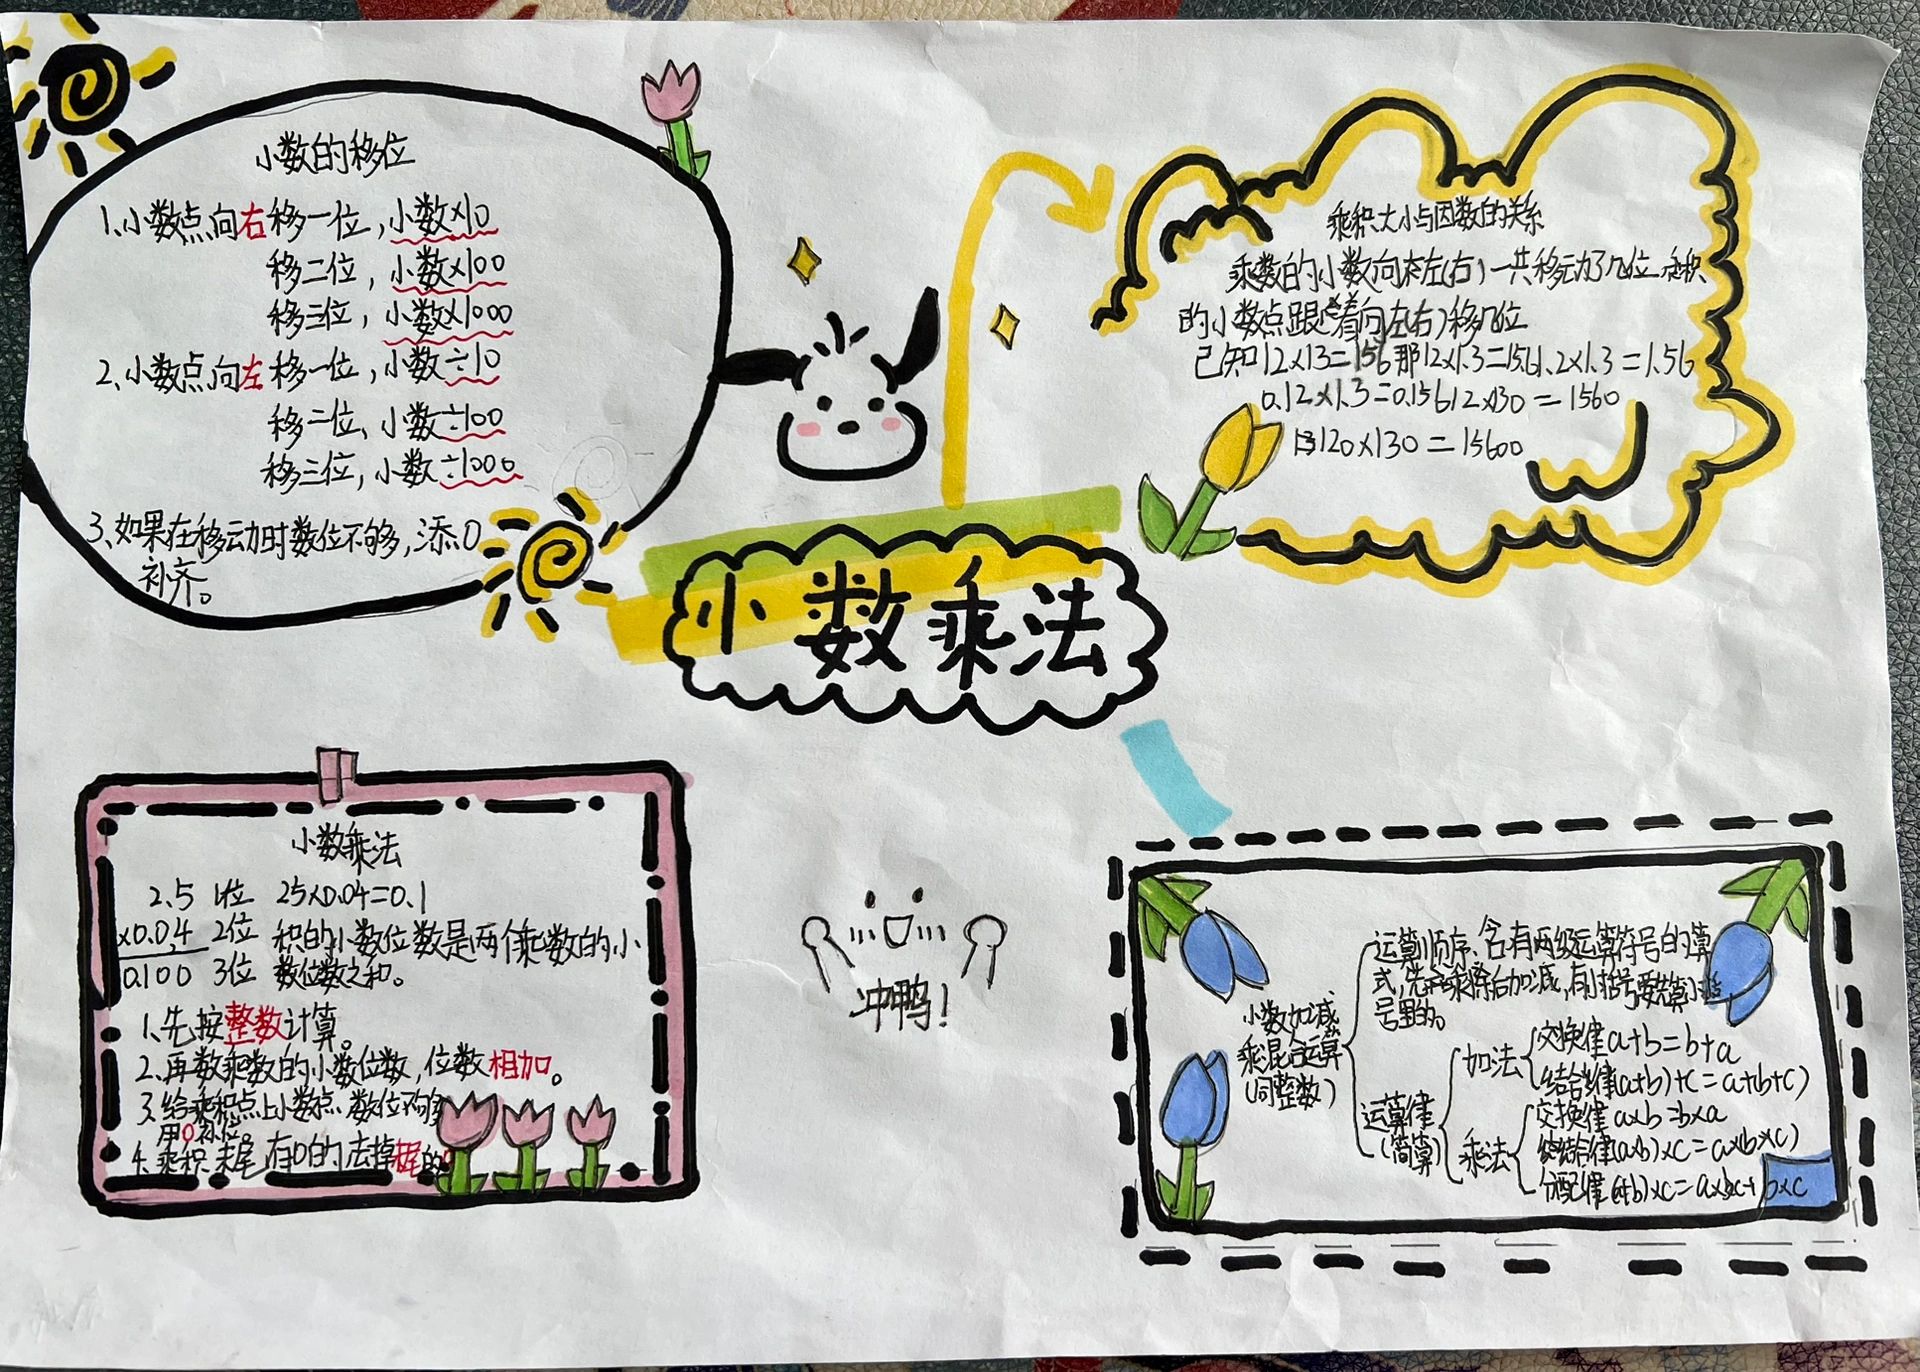 小数的移位
1、小数点向右移一位，小数×10
移二位，小数×100
移三位，小数×1000
2、小数点向左移一位，小数÷10
移二位、小数÷100
移三位，小数÷1000
3、如果在移动时数位不够，添0
补齐。
乘积大小与因数的关系
乘数的小数向左(右)一共移动了几位
的小数点跟着向左(右)移几位
已知12×13=156那12×1.3=15.61.2×1.3=1.56
0.12×1.3=0.15612×130=1560
120×130=15600
小数乘法
小数乘法
2.5 1位 25×0.04=0.1
×0.04 2位 积的小数位数是两个乘数的小
0.100 3位 数位数之和。
1、先按整数计算。
2、再数乘数的小数位数，位数相加。
3、给乘积点上小数点 数位不够
用0补位。
4、乘积末尾有0的去掉
冲鸭！
小数加减
乘混合运算
(同整数)
运算顺序、含有两级运算符号的算
式，先乘除后加减，有小括号要先算小括
号里的。
运算律
(简算)
加法
交换律a+b=b+a
结合律(a+b)+c=a+(b+c)
乘法
交换律a×b=b×a
结合律(a×b)×c=a×(b×c)
分配律 b)×c=a×c+b×c